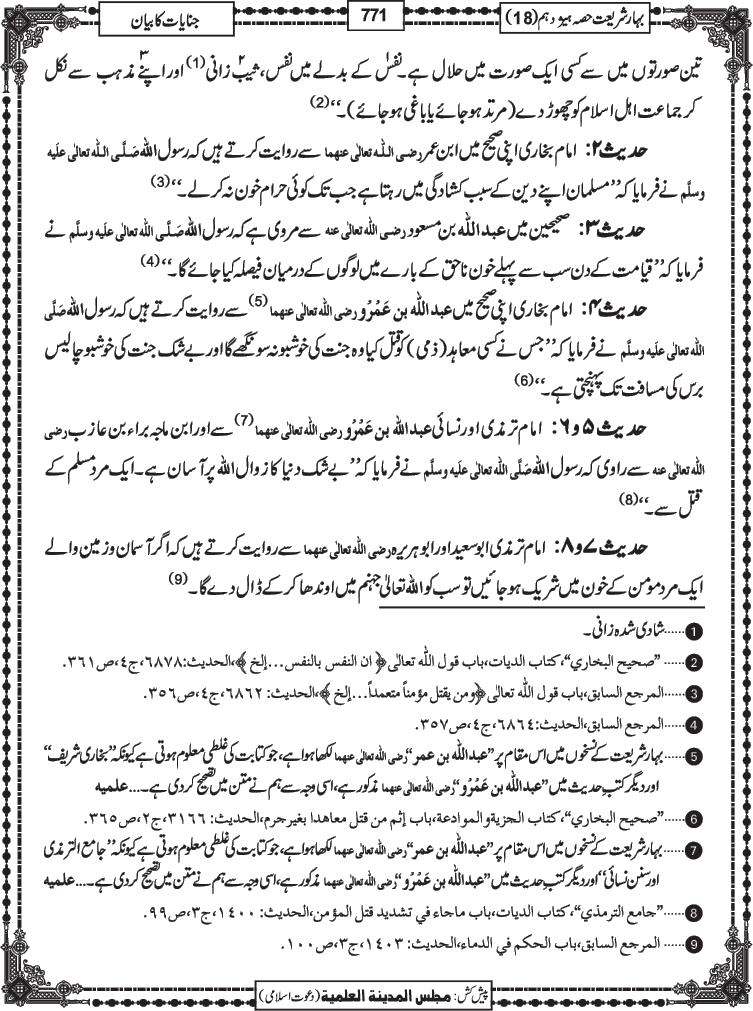 بہار شریعت حصہ ہیژدہم (18)
771
جنایات کا بیان
تین صورتوں میں سے کسی ایک صورت میں حلال ہے۔ نفس کے بدلے میں نفس، ۲ ثیب زانی (1) اور ۳ اپنے مذہب سے نکل
کر جماعت اہل اسلام کو چھوڑ دے (مرتد ہو جائے یا باغی ہو جائے)۔‘‘ (2)
حدیث ۲: امام بخاری اپنی صحیح میں ابن عمر رضی اللہ تعالٰی عنہما سے روایت کرتے ہیں کہ رسول اللہ صَلَّی اللہ تعالٰی علیہ
وسلَّم نے فرمایا کہ ’’مسلمان اپنے دین کے سبب کشادگی میں رہتا ہے جب تک کوئی حرام خون نہ کرلے۔‘‘ (3)
حدیث ۳: صحیحین میں عبد اللہ بن مسعود رضی اللہ تعالٰی عنہ سے مروی ہے کہ رسول اللہ صَلَّی اللہ تعالٰی علیہ وسلَّم نے
فرمایا کہ ’’قیامت کے دن سب سے پہلے خون ناحق کے بارے میں لوگوں کے درمیان فیصلہ کیا جائے گا۔‘‘ (4)
حدیث ۴: امام بخاری اپنی صحیح میں عبد اللہ بن عَمْرْو رضی اللہ تعالٰی عنہما (5) سے روایت کرتے ہیں کہ رسول اللہ صَلَّی
اللہ تعالٰی علیہ وسلَّم نے فرمایا کہ ’’جس نے کسی معاہد (ذمی) کو قتل کیا وہ جنت کی خوشبو نہ سونگھے گا اور بے شک جنت کی خوشبو چالیس
برس کی مسافت تک پہنچتی ہے۔‘‘ (6)
حدیث ۵ و ۶: امام ترمذی اور نسائی عبد اللہ بن عَمْرْو رضی اللہ تعالٰی عنہما (7) سے اور ابن ماجہ براء بن عازب رضی
اللہ تعالٰی عنہ سے راوی کہ رسول اللہ صَلَّی اللہ تعالٰی علیہ وسلَّم نے فرمایا کہ ’’بے شک دنیا کا زوال اللہ پر آسان ہے۔ ایک مرد مسلم کے
قتل سے۔‘‘ (8)
حدیث ۷ و ۸: امام ترمذی ابو سعید اور ابو ہریرہ رضی اللہ تعالٰی عنہما سے روایت کرتے ہیں کہ اگر آسمان و زمین والے
ایک مرد مومن کے خون میں شریک ہو جائیں تو سب کو اللہ تعالٰی جہنم میں اوندھا کر کے ڈال دے گا۔ (9)
1 ......شادی شدہ زانی۔
2 ......’’صحیح البخاري‘‘، کتاب الدیات، باب قول اللہ تعالٰی ﴿ان النفس بالنفس...إلخ﴾، الحدیث: ٦٨٧٨، ج٤، ص٣٦١.
3 ......المرجع السابق، باب قول اللہ تعالٰی ﴿ومن یقتل مؤمناً متعمداً...إلخ﴾، الحدیث: ٦٨٦٢، ج٤، ص٣٥٦.
4 ......المرجع السابق، الحدیث: ٦٨٦٤، ج٤، ص٣٥٧.
5 ......بہار شریعت کے نسخوں میں اس مقام پر ’’عبد اللہ بن عمر‘‘ رضی اللہ تعالٰی عنہما لکھا ہوا ہے، جو کتابت کی غلطی معلوم ہوتی ہے کیونکہ ’’بخاری شریف‘‘
اور دیگر کتبِ حدیث میں ’’عبد اللہ بن عَمْرْو‘‘ رضی اللہ تعالٰی عنہما مذکور ہے، اسی وجہ سے ہم نے متن میں تصحیح کر دی ہے۔...علمیہ
6 ......’’صحیح البخاري‘‘، کتاب الجزیۃ والموادعۃ، باب إثم من قتل معاھدا بغیر جرم، الحدیث: ٣١٦٦، ج٢، ص٣٦٥.
7 ......بہار شریعت کے نسخوں میں اس مقام پر ’’عبد اللہ بن عمر‘‘ رضی اللہ تعالٰی عنہما لکھا ہوا ہے، جو کتابت کی غلطی معلوم ہوتی ہے کیونکہ ’’جامع الترمذی
اور سنن نسائی‘‘ اور دیگر کتبِ حدیث میں ’’عبد اللہ بن عَمْرْو‘‘ رضی اللہ تعالٰی عنہما مذکور ہے، اسی وجہ سے ہم نے متن میں تصحیح کر دی ہے۔...علمیہ
8 ......’’جامع الترمذي‘‘، کتاب الدیات، باب ماجاء في تشدید قتل المؤمن، الحدیث: ١٤٠٠، ج٣، ص٩٩.
9 ......المرجع السابق، باب الحکم في الدماء، الحدیث: ١٤٠٣، ج٣، ص١٠٠.
پیش کش: مجلس المدینۃ العلمیۃ (دعوت اسلامی)